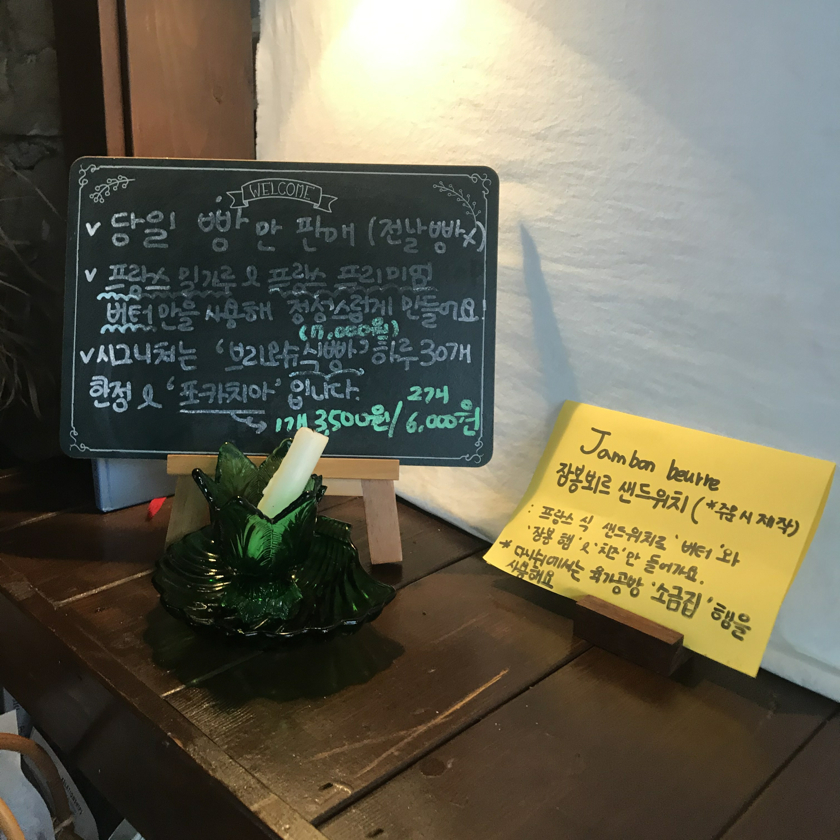 WELCOME
v 당일 빵만 판매 (전날빵x)
v 프랑스 밀가루 & 프랑스 프리미엄
버터만을 사용해 정성스럽게 만들어요!
(17,000원)
v 시그니처는 '브리오슈식빵' 하루 30개
한정 & '포카치아' 입니다.
2개
1개 3500원/6,000원
Jambon beurre
잠봉뵈르 샌드위치 (*주문시 제작)
: 프랑스식 샌드위치로 '버터'와
'잠봉햄' & '치즈'만 들어가요.
* 다시위미서는 육가공방 '소금집' 햄을
사용해요